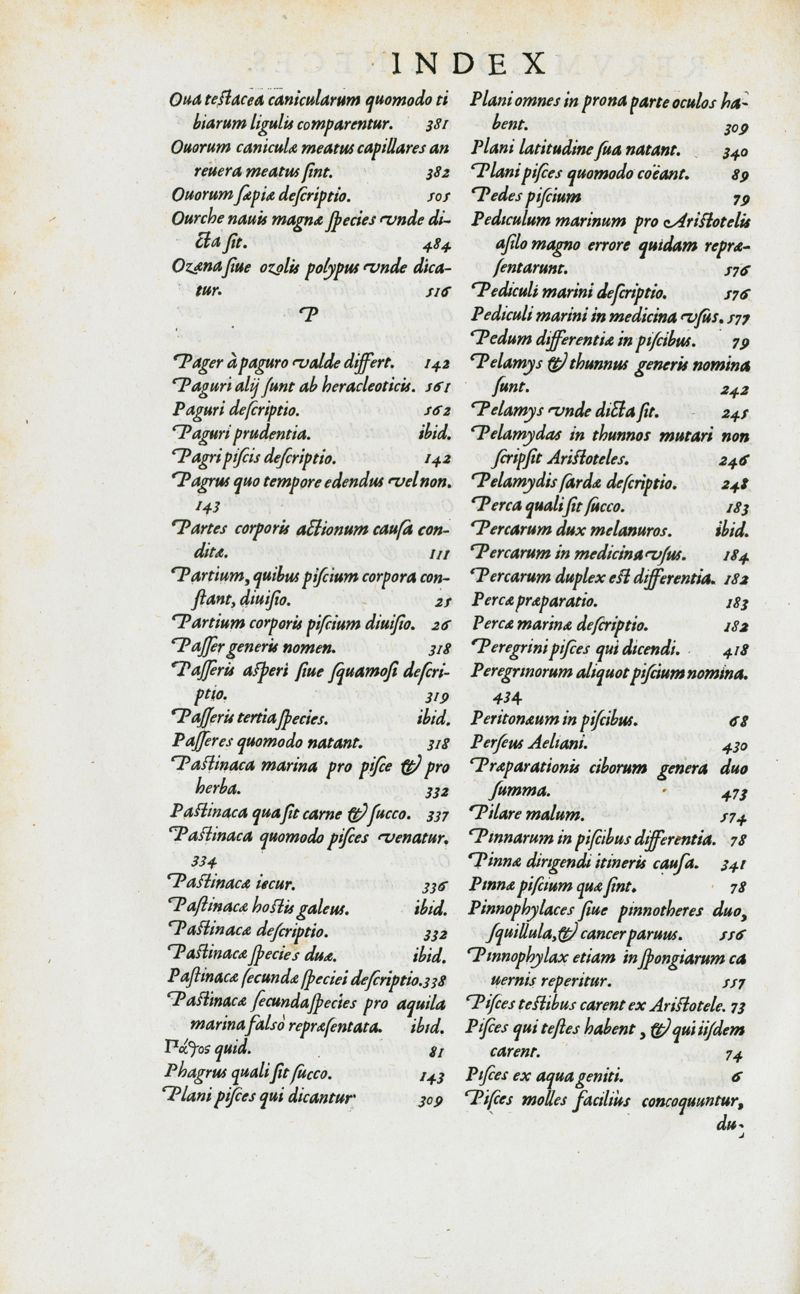 INDEX
Oua testacea canicularum quomodo ti
biarum ligulis comparentur. 381
Ouorum caniculæ meatus capillares an
reuera meatus sint. 382
Ouorum sæpiæ descriptio. 505
Ourche nauis magnæ species vnde di-
cta sit. 484
Ozæna siue ozolis polypus vnde dica-
tur. 516
P
Pager à paguro valde differt. 142
Paguri alij sunt ab heracleoticis. 561
Paguri descriptio. 562
Paguri prudentia. ibid.
Pagri piscis descriptio. 142
Pagrus quo tempore edendus vel non.
143
Partes corporis actionum causa con-
ditæ. 111
Partium, quibus piscium corpora con-
stant, diuisio. 25
Partium corporis piscium diuisio. 26
Passer generis nomen. 318
Passeris asperi siue squamosi descri-
ptio. 319
Passeris tertia species. ibid.
Passeres quomodo natant. 318
Pastinaca marina pro pisce & pro
herba. 332
Pastinaca qua sit carne & succo. 337
Pastinaca quomodo pisces venatur.
334
Pastinacæ iecur. 336
Pastinacæ hostis galeus. ibid.
Pastinacæ descriptio. 332
Pastinacæ species duæ. ibid.
Pastinacæ secundæ speciei descriptio. 338
Pastinacæ secunda species pro aquila
marina falsò repræsentata. ibid.
Πάγος quid. 81
Phagrus quali sit succo. 143
Plani pisces qui dicantur 309
Plani omnes in prona parte oculos ha-
bent. 309
Plani latitudine sua natant. 340
Plani pisces quomodo coëant. 89
Pedes piscium 79
Pediculum marinum pro Aristotelis
asilo magno errore quidam repræ-
sentarunt. 576
Pediculi marini descriptio. 576
Pediculi marini in medicina vsus. 577
Pedum differentiæ in piscibus. 79
Pelamys & thunnus generis nomina
sunt. 242
Pelamys vnde dicta sit. 245
Pelamydas in thunnos mutari non
scripsit Aristoteles. 246
Pelamydis sardæ descriptio. 248
Perca quali sit succo. 183
Percarum dux melanuros. ibid.
Percarum in medicina vsus. 184
Percarum duplex est differentia. 182
Percæ præparatio. 183
Percæ marinæ descriptio. 182
Peregrini pisces qui dicendi. 418
Peregrinorum aliquot piscium nomina.
434
Peritonæum in piscibus. 68
Perseus Aeliani. 430
Præparationis ciborum genera duo
summa. 473
Pilare malum. 574
Pinnarum in piscibus differentia. 78
Pinnæ dirigendi itineris causa. 341
Pinnæ piscium quæ sint. 78
Pinnophylaces siue pinnotheres duo,
squillula, & cancer paruus. 556
Pinnophylax etiam in spongiarum ca
uernis reperitur. 557
Pisces testibus carent ex Aristotele. 73
Pisces qui testes habent, & qui iisdem
carent. 74
Pisces ex aqua geniti. 6
Pisces molles facilius concoquuntur,
du-